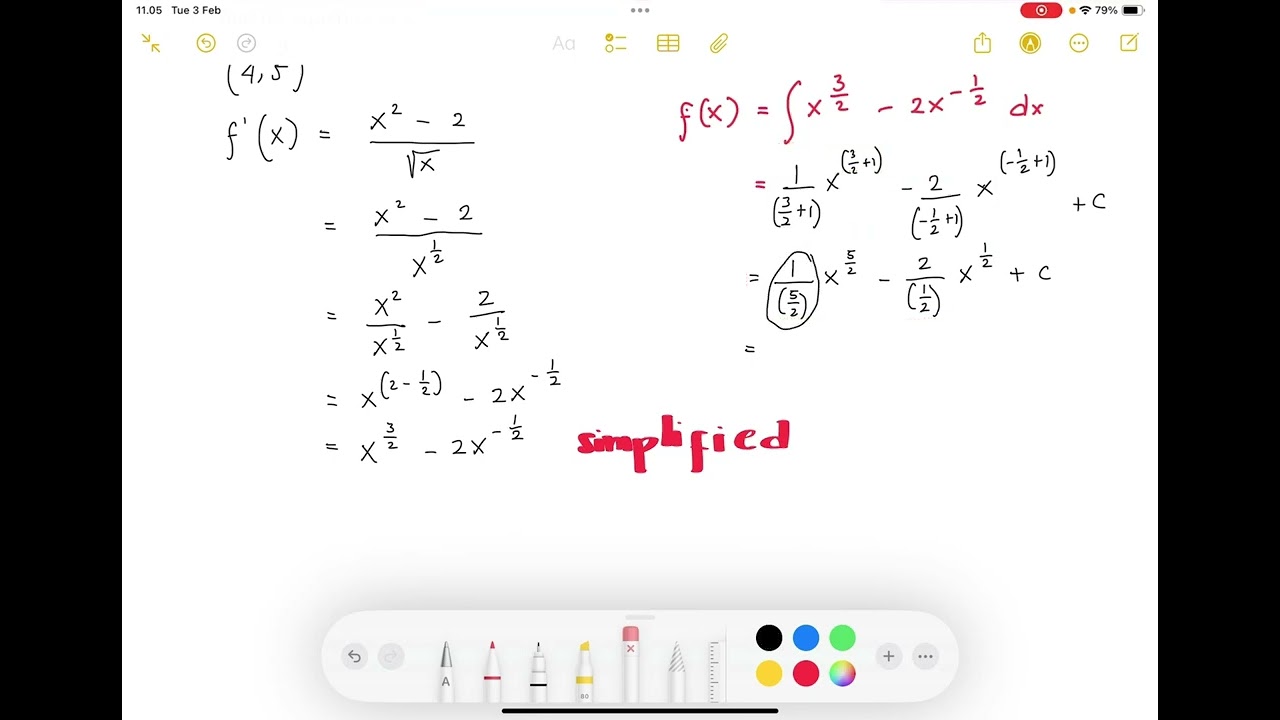 11.05 Tue 3 Feb
79%
Aa
(4,5)
f'(x) = \frac{x^2 - 2}{\sqrt{x}}
= \frac{x^2 - 2}{x^{\frac{1}{2}}}
= \frac{x^2}{x^{\frac{1}{2}}} - \frac{2}{x^{\frac{1}{2}}}
= x^{(2 - \frac{1}{2})} - 2x^{-\frac{1}{2}}
= x^{\frac{3}{2}} - 2x^{-\frac{1}{2}}
simplified
f(x) = \int x^{\frac{3}{2}} - 2x^{-\frac{1}{2}} dx
= \frac{1}{(\frac{3}{2}+1)} x^{(\frac{3}{2}+1)} - \frac{2}{(-\frac{1}{2}+1)} x^{(-\frac{1}{2}+1)} + C
= \frac{1}{(\frac{5}{2})} x^{\frac{5}{2}} - \frac{2}{(\frac{1}{2})} x^{\frac{1}{2}} + C
=
A
80